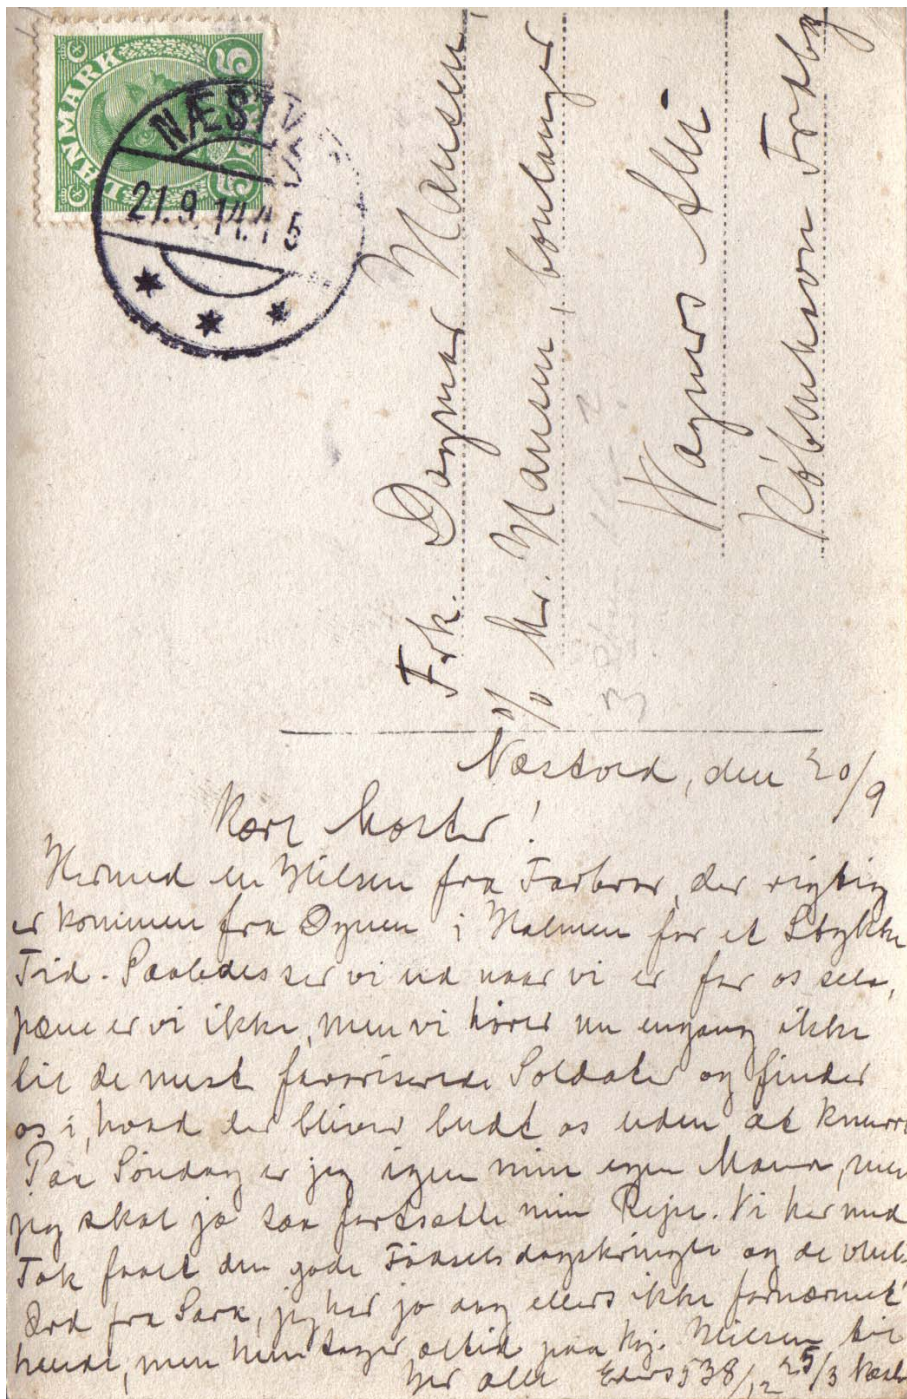 DANMARK
5 5
NÆSTV
21.9.14.4 5
Frk. Dagmar Hansen
c/o Hr. Hansen, boulanger
Wagners Alle
København Frdbg
Næstved, den 20/9
Kære Moster!
Hermed en Hilsen fra Farbror, der rigtig
er kommen fra Dynen i Halmen for et Stykke
Tid. Saaledes ser vi ud naar vi er for os selv,
pæne er vi ikke, men vi hører nu engang ikke
til de mest favoriserede Soldater og finder
os i, hvad der bliver budt os uden at knurre
Paa Søndag er jeg igen min egen Mand, men
jeg skal jo saa fortsætte min Rejse. Vi har med
Tak faaet den gode Fødselsdagskringle og de
Ord fra Sara, jeg har jo dog ellers ikke fornærmet
hende, men hun tager altid paa Vej. Hilsen til
Jer alle Eders 538/12 25/3 Næstv